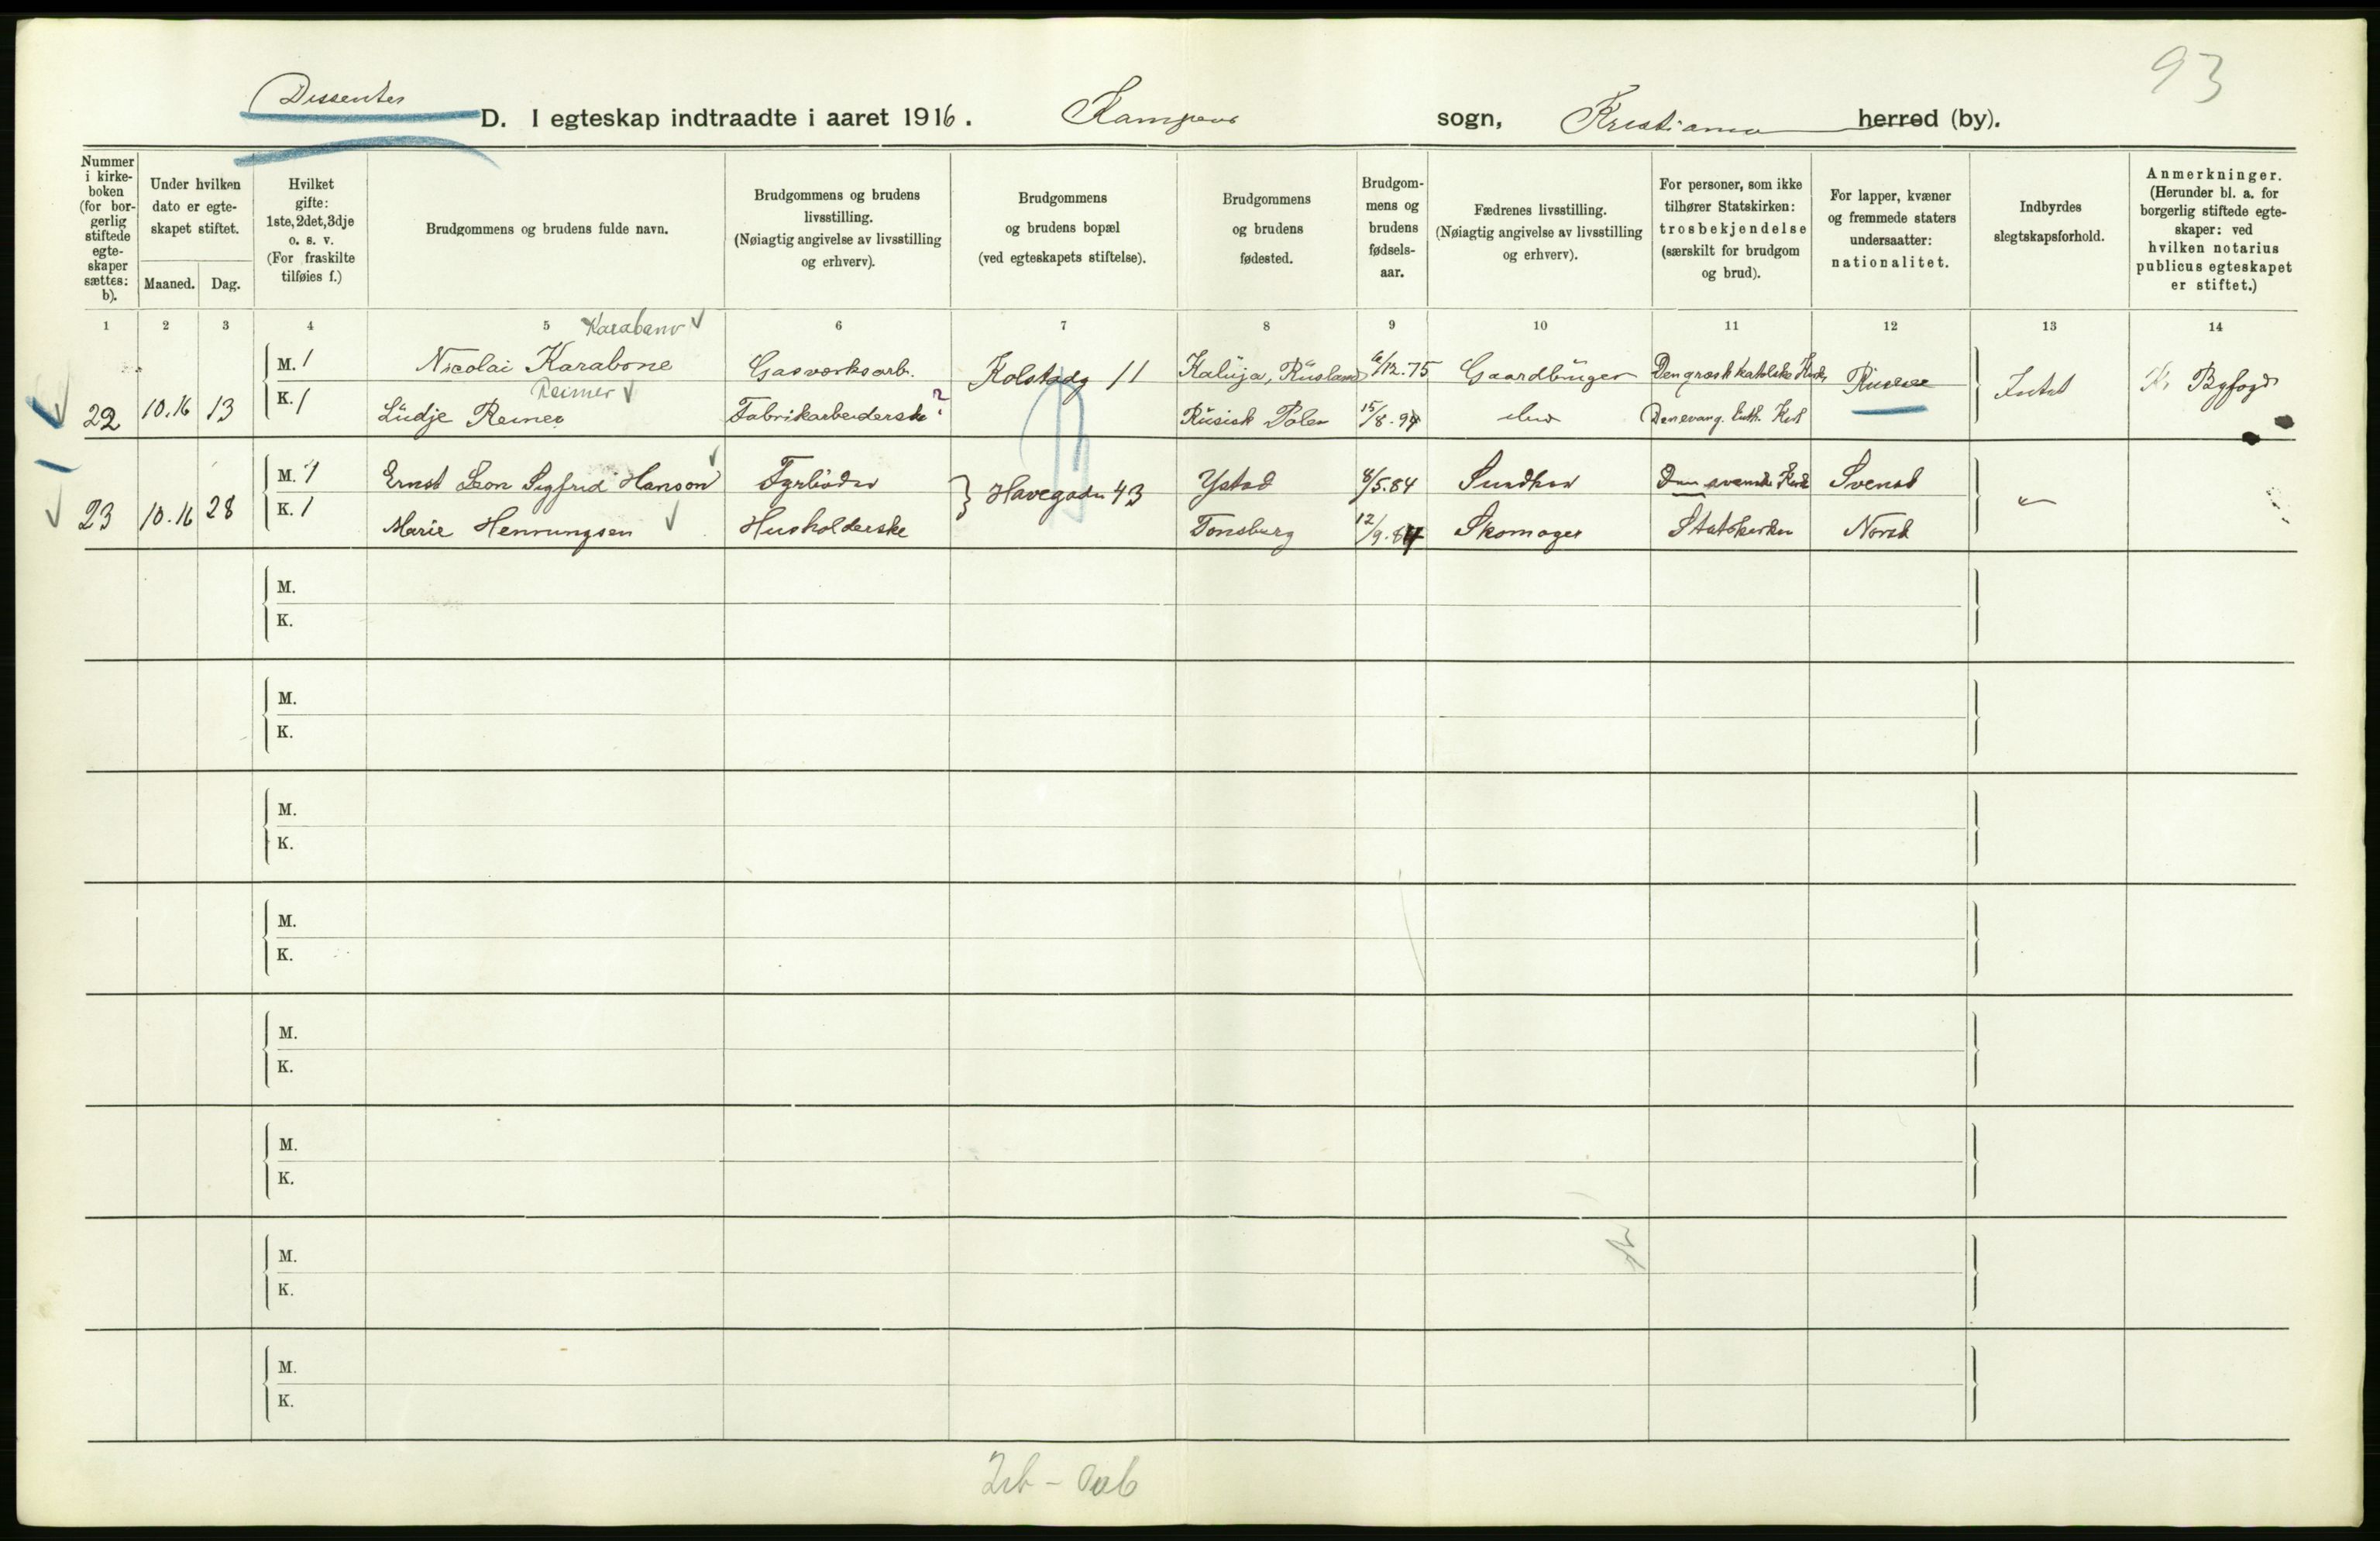 93
Dissenter
D. I egteskap indtraadte i aaret 1916. Kampens sogn, Kristiania herred (by).
Nummer i kirke-boken (for bor-gerlig stiftede egte-skaper sættes: b).
Under hvilken dato er egte-skapet stiftet.
Maaned. Dag.
Hvilket gifte: 1ste, 2det, 3dje o. s. v. (For fraskilte tilføies f.)
Brudgommens og brudens fulde navn.
Brudgommens og brudens livsstilling. (Nøiagtig angivelse av livsstilling og erhverv).
Brudgommens og brudens bopæl (ved egteskapets stiftelse).
Brudgommens og brudens fødested.
Brudgom-mens og brudens fødsels-aar.
Fædrenes livsstilling. (Nøiagtig angivelse av livsstilling og erhverv).
For personer, som ikke tilhører Statskirken: trosbekjendelse (særskilt for brudgom og brud).
For lapper, kvæner og fremmede staters undersaatter: nationalitet.
Indbyrdes slegtskapsforhold.
Anmerkninger. (Herunder bl. a. for borgerlig stiftede egte-skaper: ved hvilken notarius publicus egteskapet er stiftet.)
1 2 3 4 5 6 7 8 9 10 11 12 13 14
Karabanv
M. 1 Nicolai Karabone Gasverksarb. Kolstadg 11 Kaluja, Rusland 6/12.75 Gaardbruger Den græsk katolske Kirke Russere Intet Kr. Byfogd
Reimer
22 10.16 13 K. 1 Ludje Reiner Fabrikarbeiderske ? Rusisk Polen 15/8.94 Den evang. luth. Kirk
M. 1 Ernst Leon Sigfrid Hanson Fyrbøder Havegaden 43 Ystad 8/5.84 Den svenske Kirke Svensk
23 10.16 28 K. 1 Marie Henningsen Husholderske Tønsberg 12/9.84 Skomager Statskirken Norsk
M.
K.
M.
K.
M.
K.
M.
K.
M.
K.
M.
K.
M.
K.
M.
K.